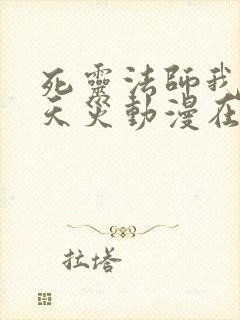 死靈法師我
天災動漫在
拉塔